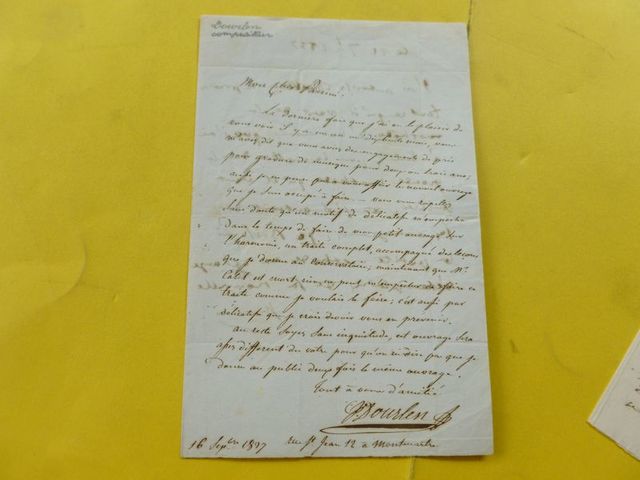 Dourlen
compositeur
Mon cher
La dernière fois que j'ai eu le plaisir de
vous voir il y a environ mois, vous
m'avez dit que vous aviez des engagements de pris
pour gravure de musique pour deux ou trois ans,
aussi je ne pense pas à vous offrir le nouvel ouvrage
que je suis occupé à faire - vous vous rappelez
sans doute qu'un motif de délicatesse m'empêcha
dans le temps de faire de mon petit ouvrage sur
l'harmonie, un traité complet, accompagné des leçons
que je donne au conservatoire; maintenant que Mr.
Catel est mort, rien ne peut m'empêcher de faire ce
traité comme je voulais le faire; c'est aussi par
délicatesse que je crois devoir vous en prévenir.
au reste soyez sans inquiétude, cet ouvrage sera
assez différent du votre pour qu'on ne dise pas que je
donne au public deux fois le même ouvrage.
Tout à vous d'amitié
Dourlen
16 Sepbre 18 rue St Jean 12 à Montmartre